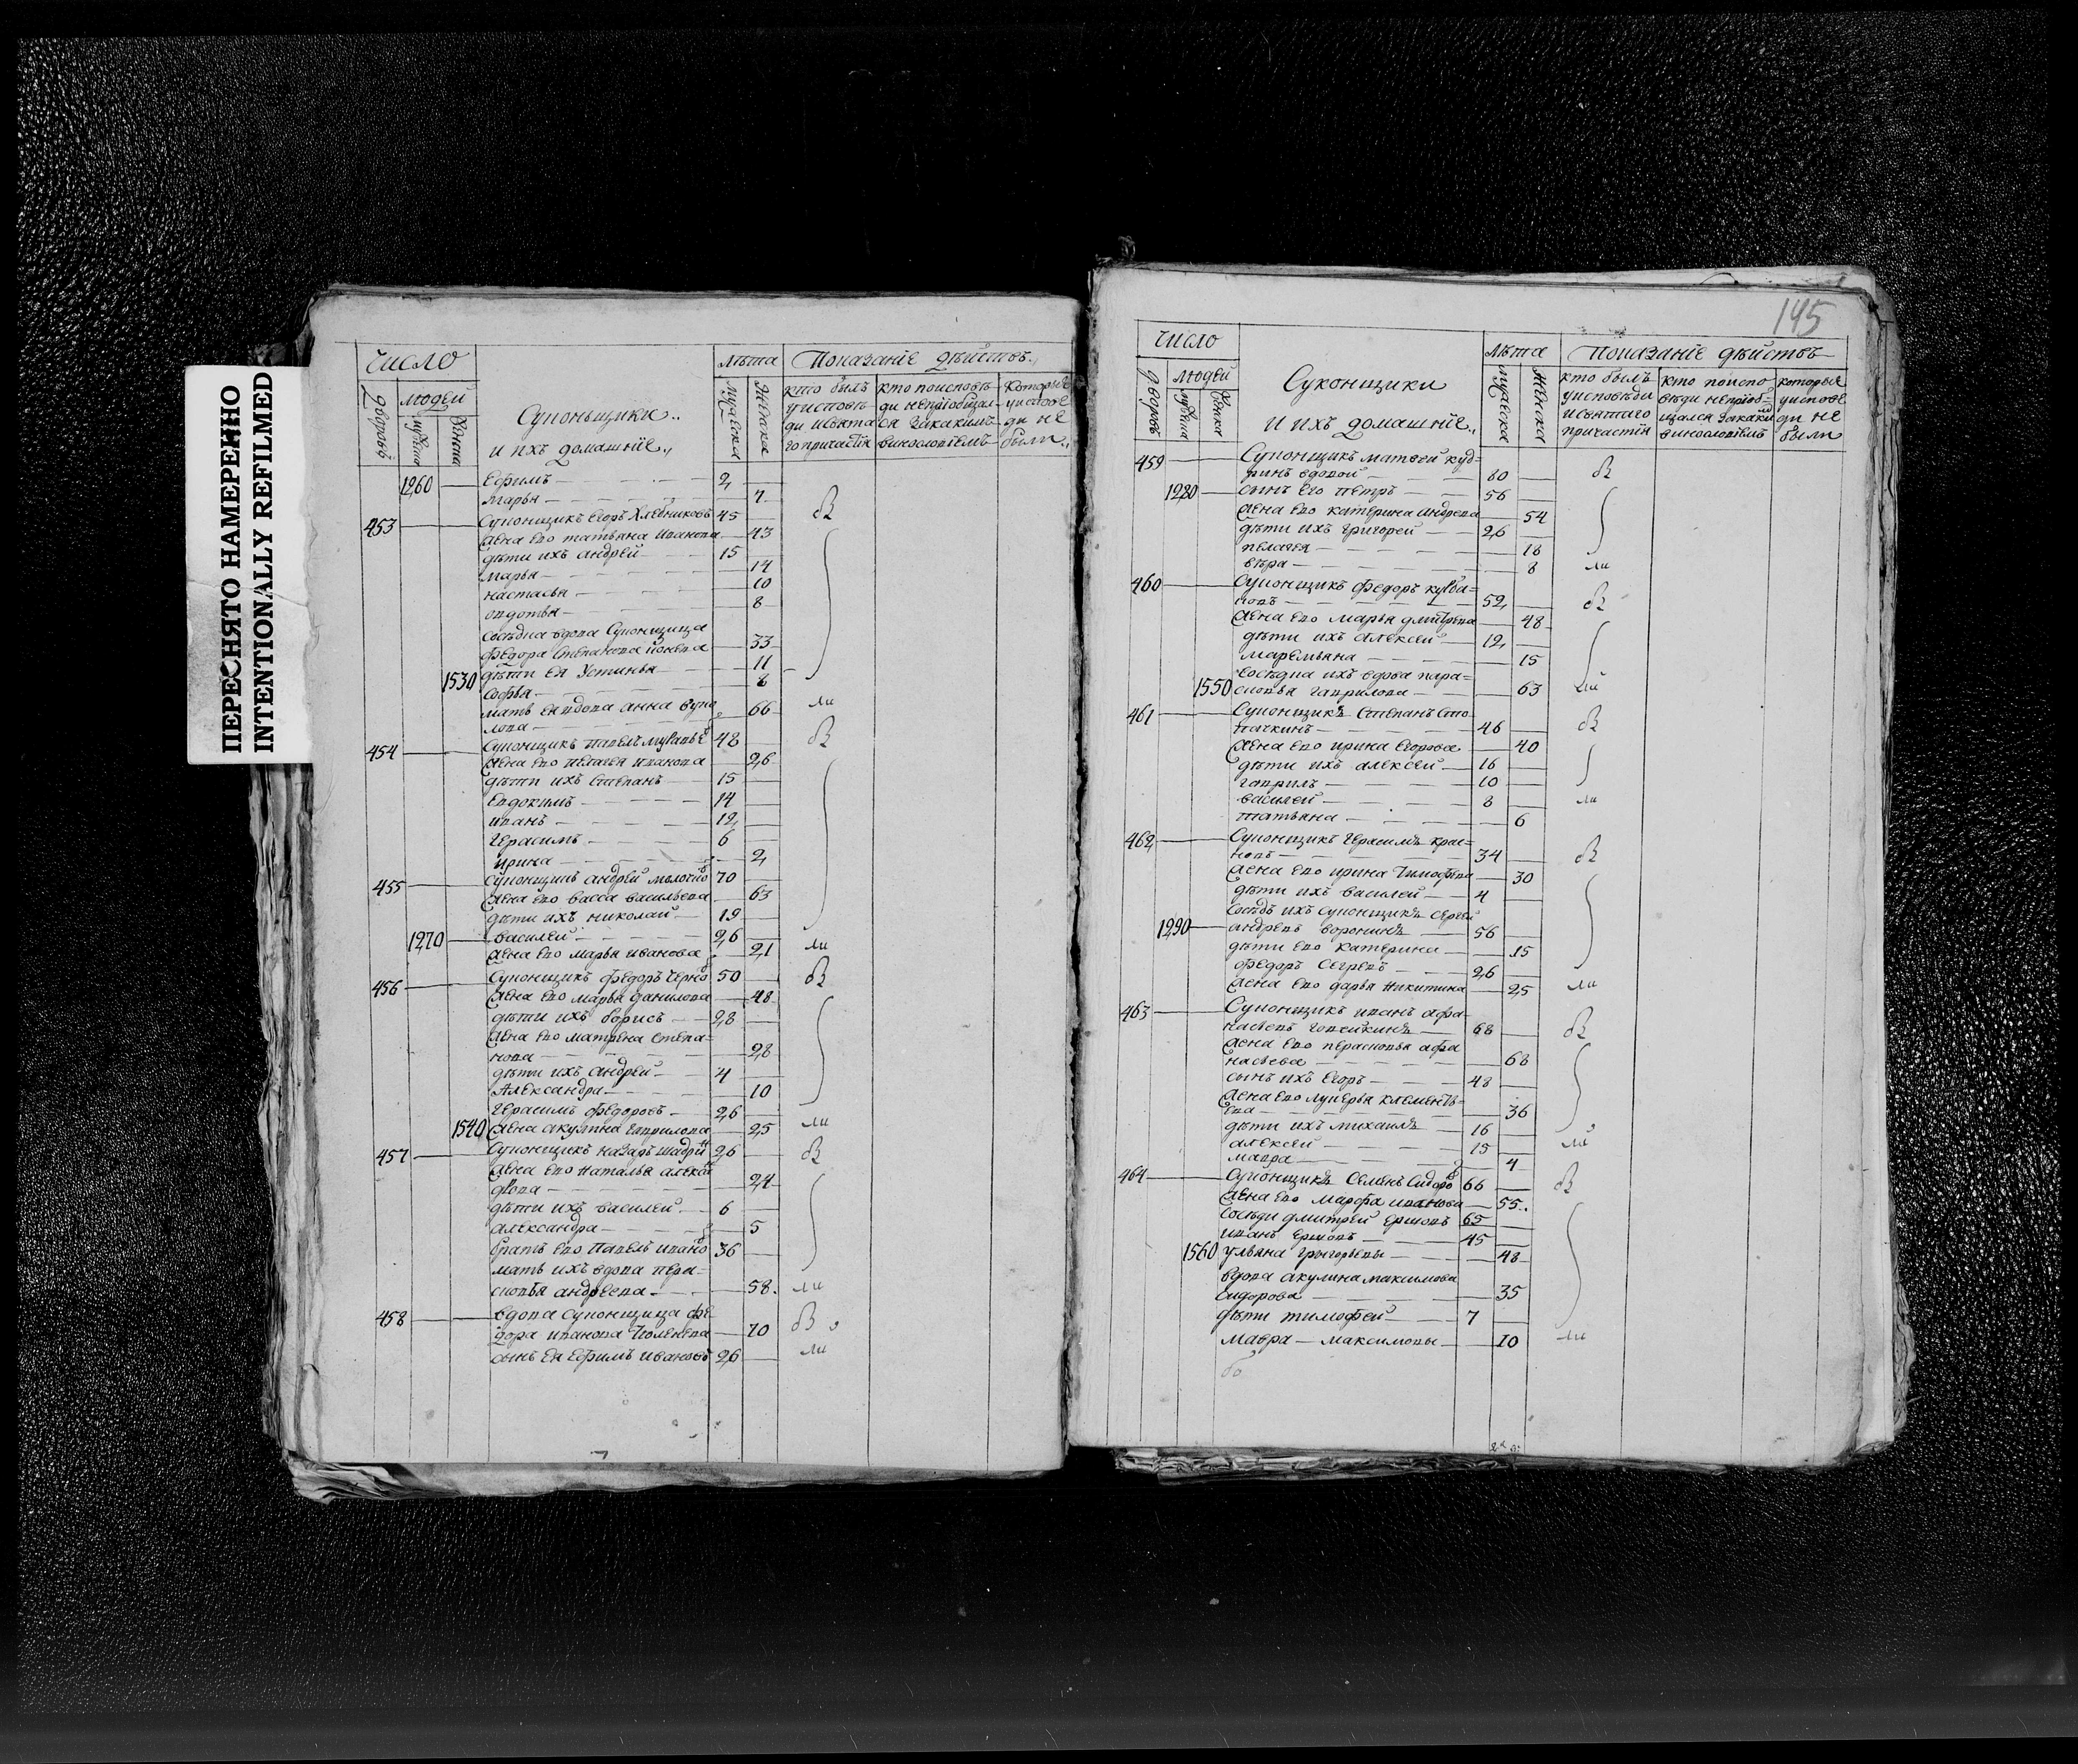 ПЕРЕСНЯТО НАМЕРЕННО
INTENTIONALLY REFILMED
число
лѣта Показанїе дѣйствъ
дворовъ людей
мужеска женска
Суконьщики
и ихъ домашнїе
мужеска женска
кто былъ у исповѣди и свята го причастїя
кто по исповѣди не прїобщался за какимъ винословїемъ
которые у исповеди не были
1260 Ефимъ 2
Марья 7
453 Суконщикъ Егоръ Хлебниковъ 45
жена ево татьяна иванова 43
дѣти ихъ андрей 15
марья 14
настасья 10
овдотья 8
соседка вдова Суконщица
федора Степанова 33
дѣти ея Устинья 11
1530 софья 8
мать ея вдова анна 66
454 Суконщикъ павелъ 48
жена ево пелагея иванова 26
дѣти ихъ Степанъ 15
Евдокимъ 14
иванъ 12
герасимъ 6
ирина 2
455 суконщикъ андрей 70
жена ево васса васильева 63
дѣти ихъ николай 19
1270 василей 26
жена ево марья иванова 21
456 Суконщикъ федоръ черно 50
жена ево марья данилова 48
дѣти ихъ борисъ 28
жена ево матрена степа-
нова 28
дѣти ихъ андрей 4
Александра 10
герасимъ федоровъ 26
1540 жена акулина гаврилова 25
457 Суконщикъ назаръ шадри 26
жена ево наталья алексе
24
дѣти ихъ василей 6
александра 5
братъ ево павелъ ивано 36
мать ихъ вдова пера-
сковья андреева 58
458 вдова суконщица фе-
дора иванова 70
сынъ ея ефимъ ивановъ 26
145
число
лѣта Показанїе дѣйствъ
дворовъ людей
мужеска женска
Суконщики
и ихъ домашнїе
мужеска женска
кто былъ у исповѣди и святаго причастїя
кто по исповѣди не прїобщался за какимъ винословїемъ
которые у исповеди не были
459 Суконщикъ матвей куд-
ринъ вдовой 80
1280 сынъ его петръ 56
жена ево катерина андрева 54
дѣти ихъ григорей 26
пелагея 18
вера 8
460 Суконщикъ федоръ
52
жена ево марья дмитрева 48
дѣти ихъ алексей 12
маремьяна 15
соседка ихъ вдова пара-
1550 сковья гаврилова 63
461 Суконщикъ Степанъ
46
жена ево ирина егорова 40
дѣти ихъ алексей 16
гаврилъ 10
василей 8
татьяна 6
462 Суконщикъ герасимъ крас-
новъ 34
жена ево ирина тимофева 30
дѣти ихъ василей 4
соседъ ихъ суконщикъ сергей
1290 андревъ воронинъ 56
дѣти ево катерина 15
федоръ 26
жена ево дарья никитина 25
463 Суконщикъ иванъ афа-
насьевъ 68
жена ево перасковья афа
насьева 68
сынъ ихъ егоръ 48
жена ево лукерья клементь-
ева 36
дѣти ихъ михаилъ 16
алексей 15
мавра 4
464 Суконщикъ Семенъ Сидоро 66
жена ево марфа иванова 55
соседи дмитрей ершовъ 65
иванъ ершовъ 45
1560 ульяна григорьевы 48
вдова акулина максимова
сидорова 35
дѣти тимофей 7
мавра максимовы 10